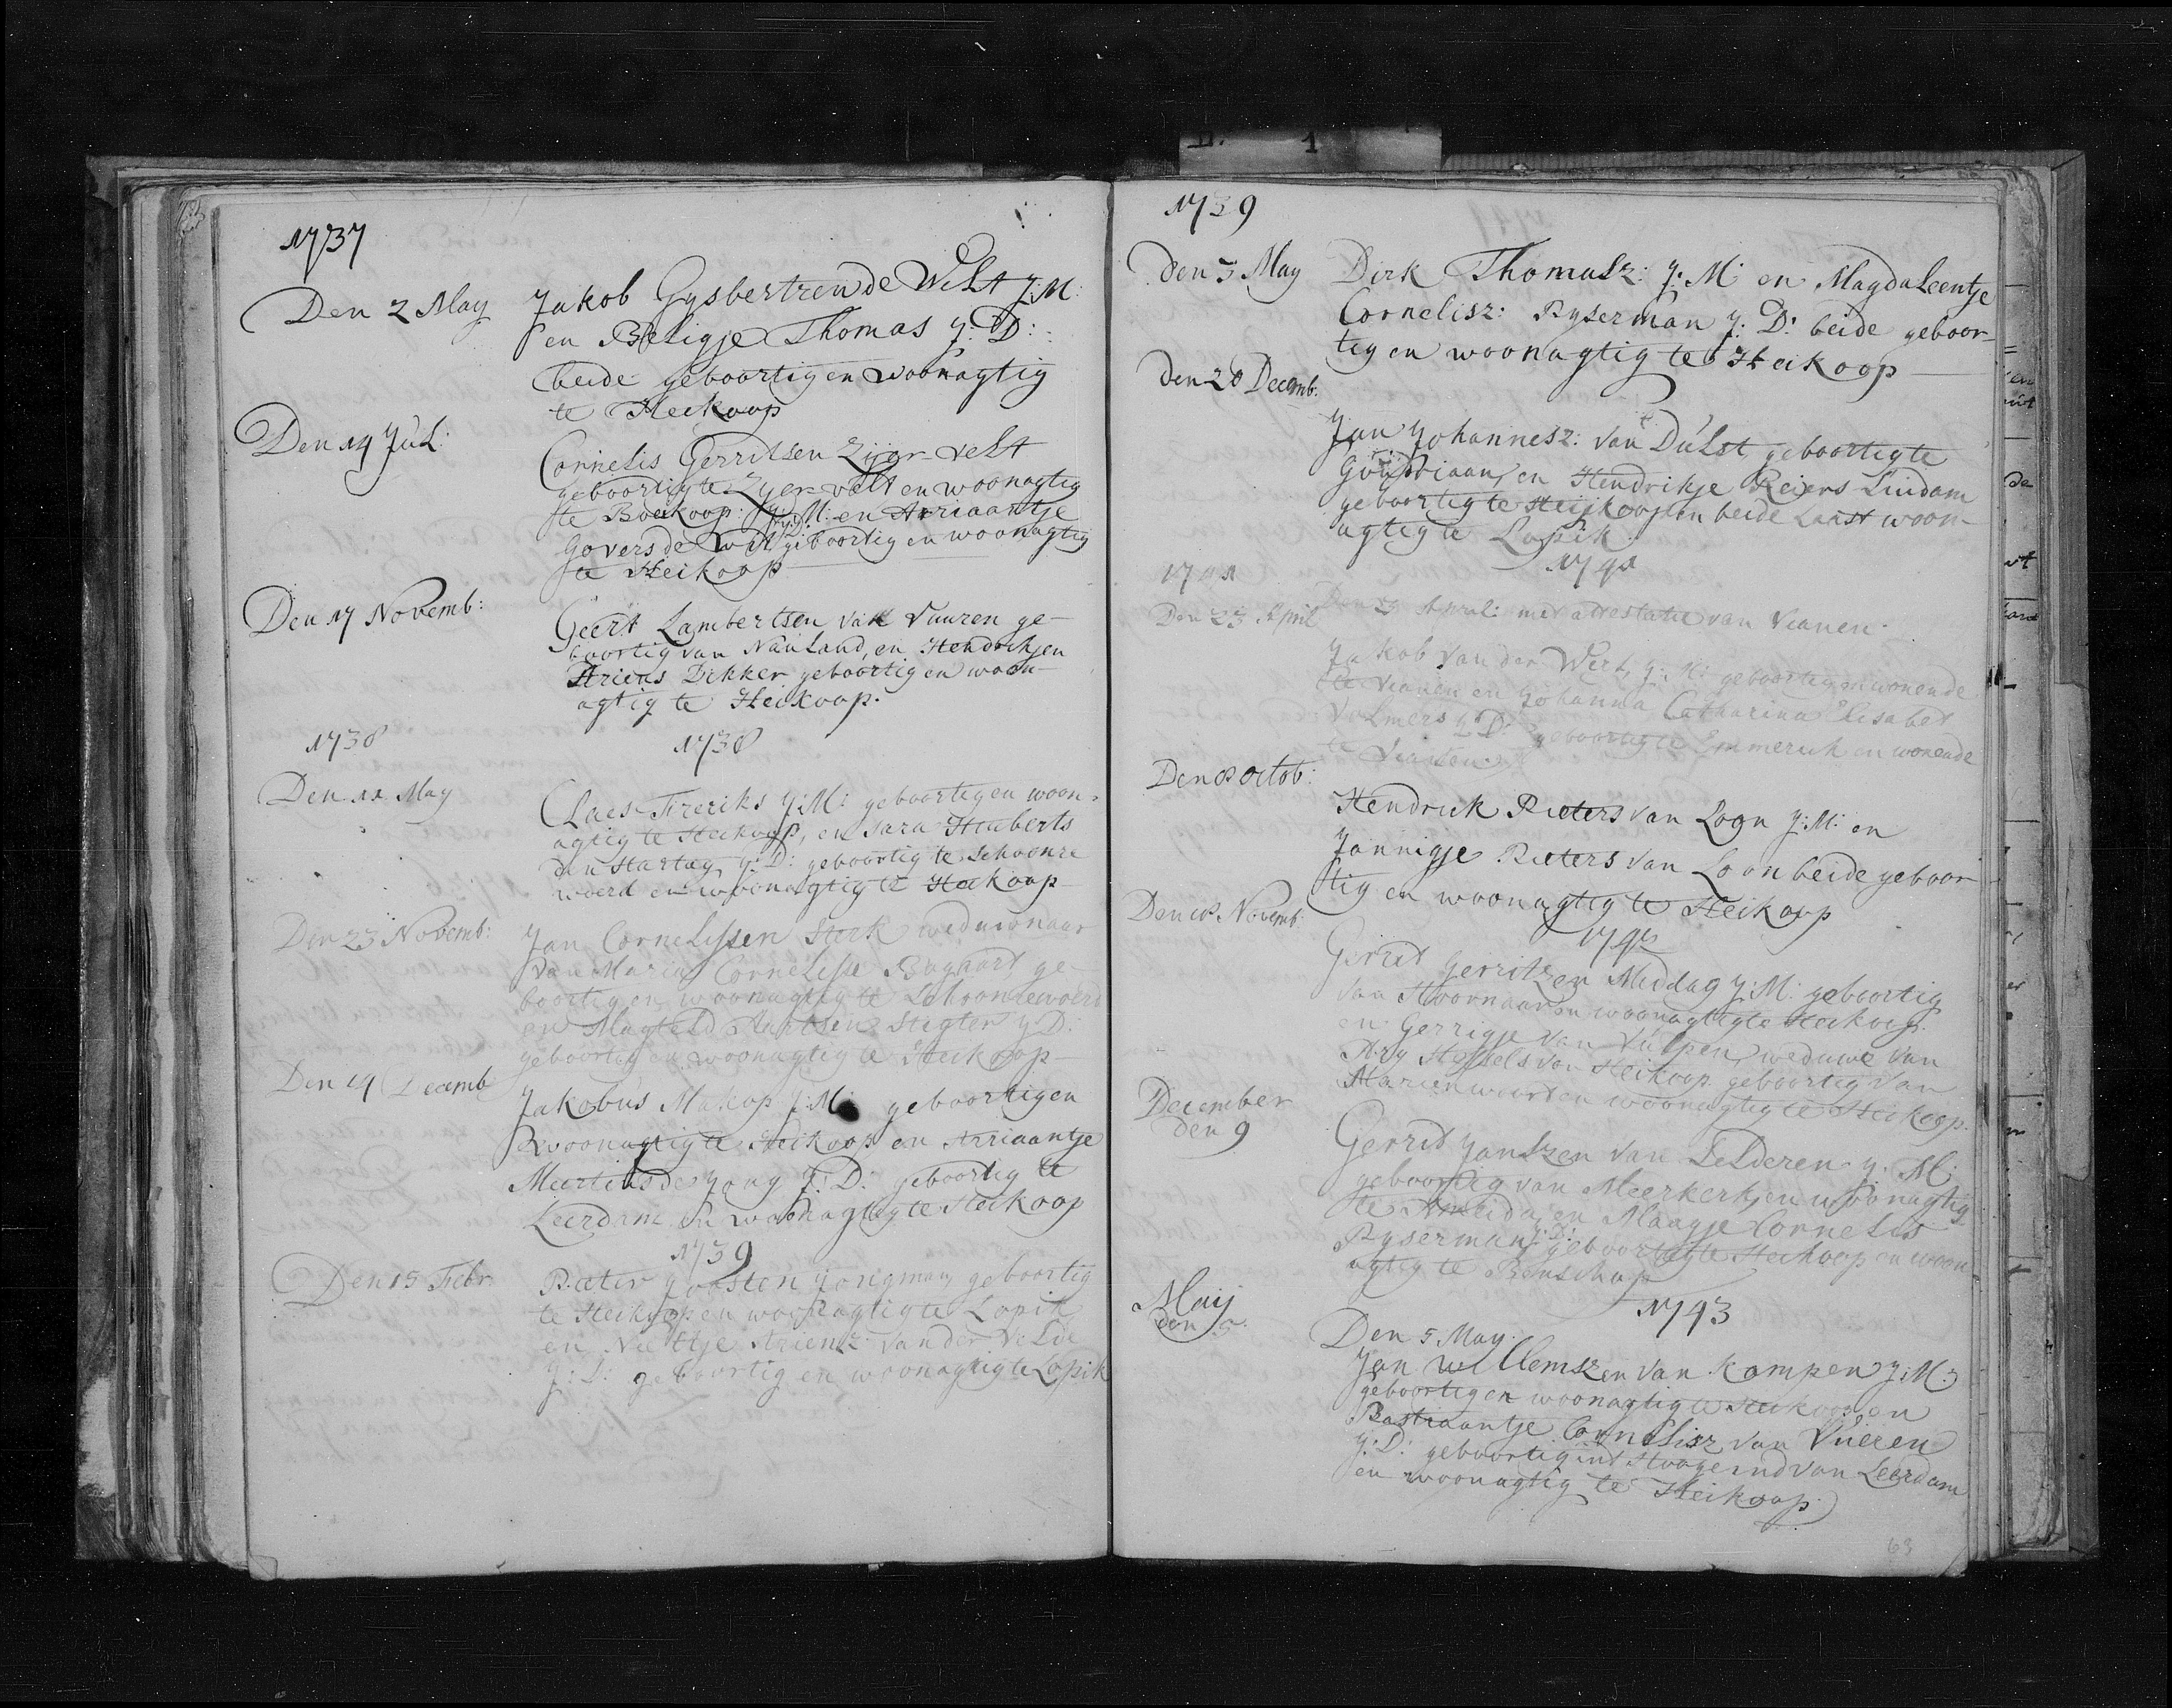 1737
Den 2 May
Jakob Gysbertzen de Welt J:M:
en Beligje Thomas J: D:
beide geboortig en woonagtig
te Heikoop
Den 14 Jul:
Cornelis Gerritsen Zijer-velt
geboortig te Zyer-velt en woonagtig
te Boeikoop: J: M: en Arriaantje
Govers de Wit J:D: geboortig en woonagtig
te Heikoop
Den 17 Novemb:
Geert Lambertsen van Vuuren ge-
boortig van Nauland, en Hendrikjen
Ariens Dekker geboortig en woon-
agtig te Heikoop.
1738
1738
Den 11 May
Claes Freriks J:M: geboortig en woon-
agtig te Heikoop, en Sara Huiberts
den Hartag J: D: geboortig te Schoonre
woerd en woonagtig te Heikoop
Den 23 Novemb:
Jan Cornelissen Sterk weduwnaar
van Maria Cornelisse Bogaart ge-
boortig en woonagtig te Schoonrewoerd
en Magteld Aartsen Stigter J D:
geboortig en woonagtig te Heikoop
Den 14 Decemb
Jakobus Makop J:M: geboortig en
woonagtig te Heikoop en Arriaantje
Meertens de Jong J: D: geboortig te
Leerdam en woonagtig te Heikoop
1739
Den 15 Febr.
Pieter Joosten Jongman, geboortig
te Heikoop en woonagtig te Lopik
en Neeltje Ariensz van der Velde
J: D: geboortig en woonagtig te Lopik
1739
den 3 May
Dirk Thomasz: J: M: en Magdaleentje
Cornelisz: Ryserman J: D: beide geboor-
tig en woonagtig te Heikoop
den 20 Decemb:
Jan Johannesz: van Dulst geboortig te
Goudriaan, en Hendrikje Reiers Lindam
geboortig te Heijkoop en beide laast woon-
agtig te Lopik.
1741
1741
Den 23 April
Den 23 April: met attestatie van Vianen
Jakob van der Wert, J: M: geboortig en wonende
te Vianen en Johanna Catharina Elisabet
Volmers J: D: geboortig te Emmerik en wonende
te Vianen
Den 8 Octob:
Hendrik Pieters van Loon J:M: en
Jannigje Pieters van Loon beide geboor
tig en woonagtig te Heikoop
1742
Den 18 Novemb:
Gerrit Gerritzen Middag J:M: geboortig
van Hoornaar en woonagtig te Heikoop
en Gerrigje van Vulpen, weduwe van
Ary Stoffels van Heikoop geboortig van
Marienwaart en woonagtig te Heikoop.
December
den 9
Gerrit Janszen van Telderen J: M:
geboortig van Meerkerk, en woonagtig
te Ameida, en Maagje Cornelis
Ryserman J: D: geboortig te Heikoop en woon
agtig te Benschop
1743
Maij
den 5.
Den 5 May.
Jan Willemszen van Kampen J:M:
geboortig en woonagtig te Heikoop en
Bastiaantje Cornelisz van Vueren
J: D: geboortig int Hoogeind van Leerdam
en woonagtig te Heikoop.
63